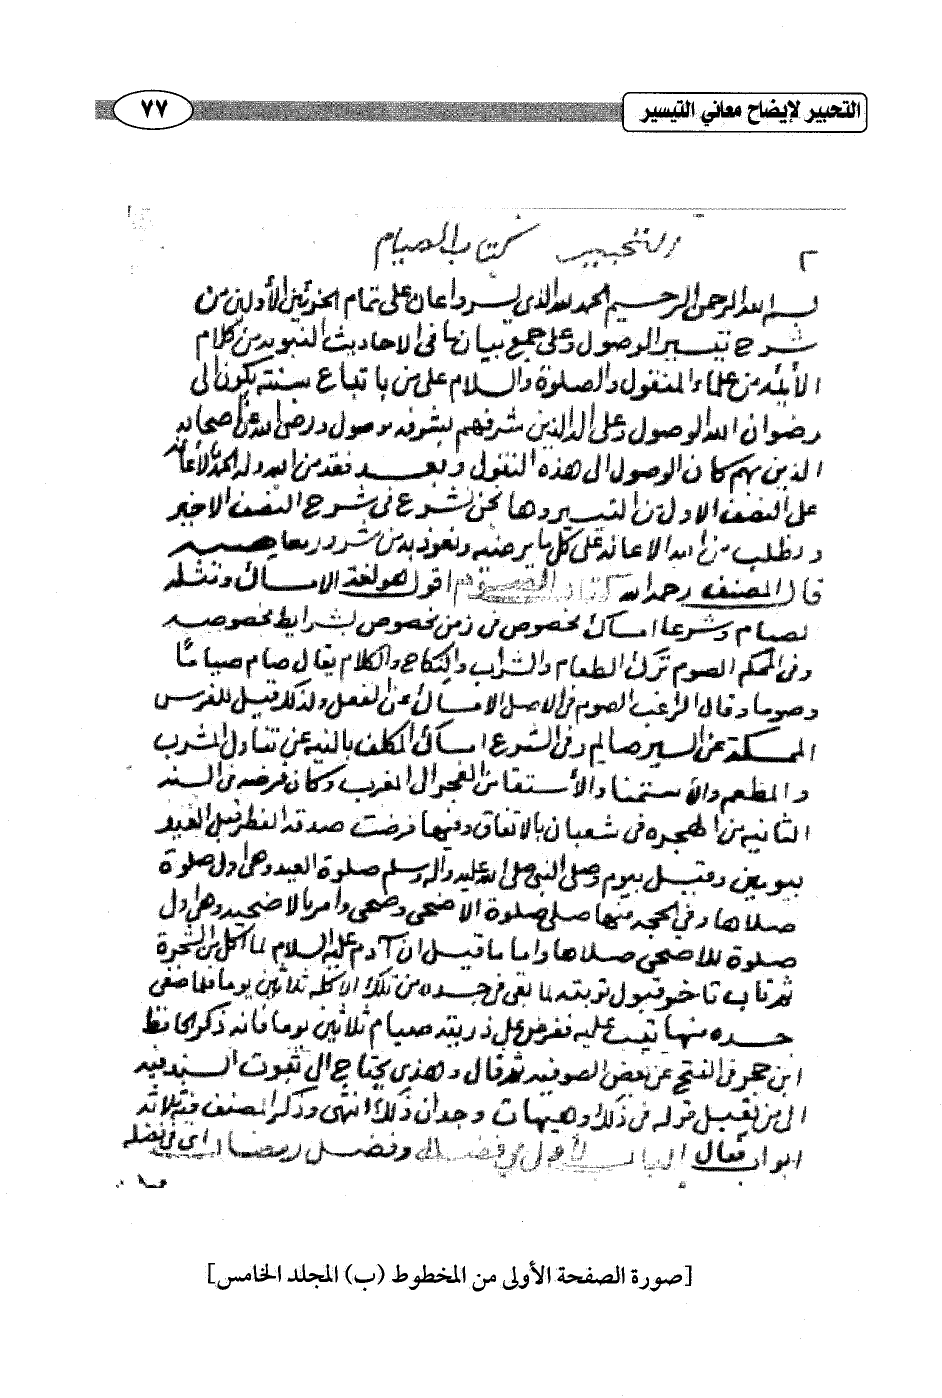 التحبير لإيضاح معاني التيسير
٧٧
٢ التحبير كتاب الصيام
بسم الله الرحمن الرحيم الحمد لله الذي يسر واعان على تمام الجزئين الأولين من
شرح تيسير الوصول وعلى جمع بيان ما في الاحاديث النبويه من كلام
الأئمه من علماء المنقول والصلوة والسلام على من باتباع سنته يكون الى
رضوان الله الوصول وعلى اله الذين شرفهم بشرفه موصول ورضي الله عن اصحابه
الذين بهم كان الوصول الى هذه النقول وبعد فقد من الله وله الحمد بالأعانه
على النصف الاول من التيسير وها نحن نشرع في شرح النصف الاخير
ونطلب من الله الاعانه على كل ما يرضيه ونعوذ به من شرور معاصيه
قال المصنف رحمه الله كتاب الصوم اقول هو لغة الامساك ومثله
لصيام وشرعا امساك مخصوص في زمن مخصوص بشرايط مخصوصه
وفي المحكم الصوم ترك الطعام والشراب والنكاح والكلام يقال صام صياما
وصوما وقال الراغب الصوم في الاصل الامساك عن الفعل ولذلك قيل للفرس
الممسكة عن السير صايم وفي الشرع امساك المكلف بالنيه عن تناول المشرب
والمطعم والأستمنا والأستقا من الفجر الى المغرب وكان فرضه في السنه
الثانيه من الهجره في شعبان بالاتفاق وفيها فرضت صدقه الفطر قبل العيد
بيومين وقيل بيوم وصلى النبي صلى الله عليه واله وسلم صلوة العيد وهي اول صلوة
صلاها وفي الحجه منها صلى صلوة الاضحى وضحى وامر بالاضحيه وهي اول
صلوة للاضحى صلاها واما ما قيل ان آدم عليه السلام لما اكل من الشجرة
ثم تاب تاخر قبول توبته لما بقى في جسده من تلك الاكله ثلاثين يوما فلما صفى
جسده منها تيب عليه ففرض على ذريته صيام ثلاثين يوما فانه ذكر الحافظ
ابن حجر في الفتح عن بعض الصوفيه ثم قال وهذي يحتاج الى ثبوت السند فيه
الى من يقبل قوله في ذلك وهيهات وجدان ذلك انتهى وذكر المصنف فيه ثلاثه
ابواب فقال الباب الأول في فضله وفضل رمضان اي في فضله
[صورة الصفحة الأولى من المخطوط (ب) المجلد الخامس]